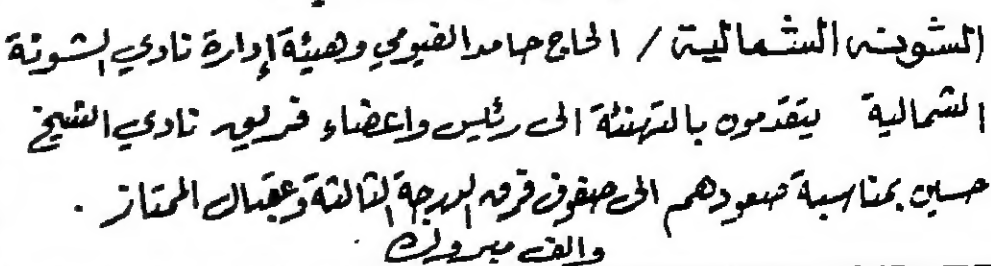 الشونة الشمالية / الحاج حامد الفيومي وهيئة إدارة نادي الشونة
الشمالية يتقدمون بالتهنئة الى رئيس واعضاء فريق نادي الشيخ
حسين بمناسبة صعودهم الى صفوف فرق الدرجة الثالثة وعقبال الممتاز .
والف مبروك